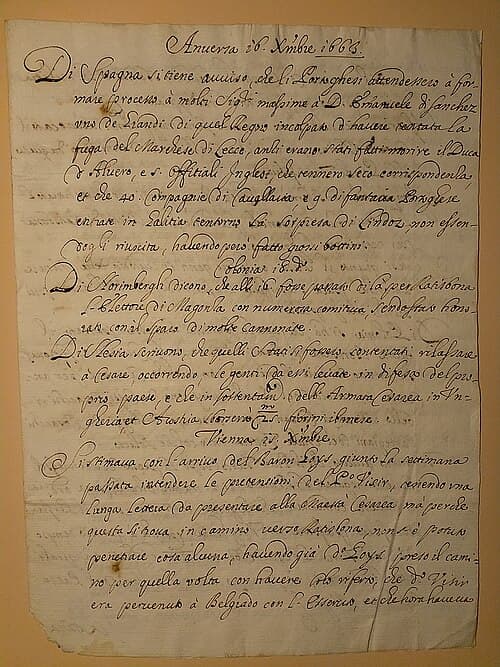 Anversa 16. Xmbre 1663.
Di Spagna si tiene avviso, che li Portoghesi attendessero à for-
mare processo à molti Sigri massime à D. Emanuele d Sanchez
uno de Grandi di quel Regno incolpato d havere tentata la
fuga del Marchese di Lecce, anzi erano stati fatti morire il Duca
d Aveiro, e 5. Offitiali Inglesi che tennero seco corrispondenza,
et che 40 Compagnie di Cavallaria e 9. di fantaria Portoghese
entrate in Galitia tentorno la sorpresa di Lindoz non essen-
dogli riuscita, havendo però fatto grossi bottini.
Colonia 16. do
Di Norimbergh dicono, che alli 16 fosse passato di là per Ratisbona
l'Elettore di Magonza con numerosa comitiva sendo stato hono-
rato con il sparo di molte Cannonate.
Di Slesia scrivono, che quelli Stati si fossero contentati rilassare
à Cesare occorrendo, le genti da essi levate in difesa del pro-
prio paese, e che in sostentam.to dell' Armata Cesarea in Un-
gheria et Austria sborserà 25 fiorini il mese.
Vienna 15. Xmbre
Si stimava con l'arrivo del Baron Goys, giunto la settimana
passata intendere le pretensioni del Po Visir, tenendo una
lunga lettera da presentare alla Maestà Cesarea mà perche
questa si trova in camino verso Ratisbona, non s' è potuto
penetrare cosa alcuna, havendo già do Goys preso il cami-
no per quella volta con havere solo riferto, che do Visir
era pervenuto à Belgrado con l' Essercito, et che hora haveva